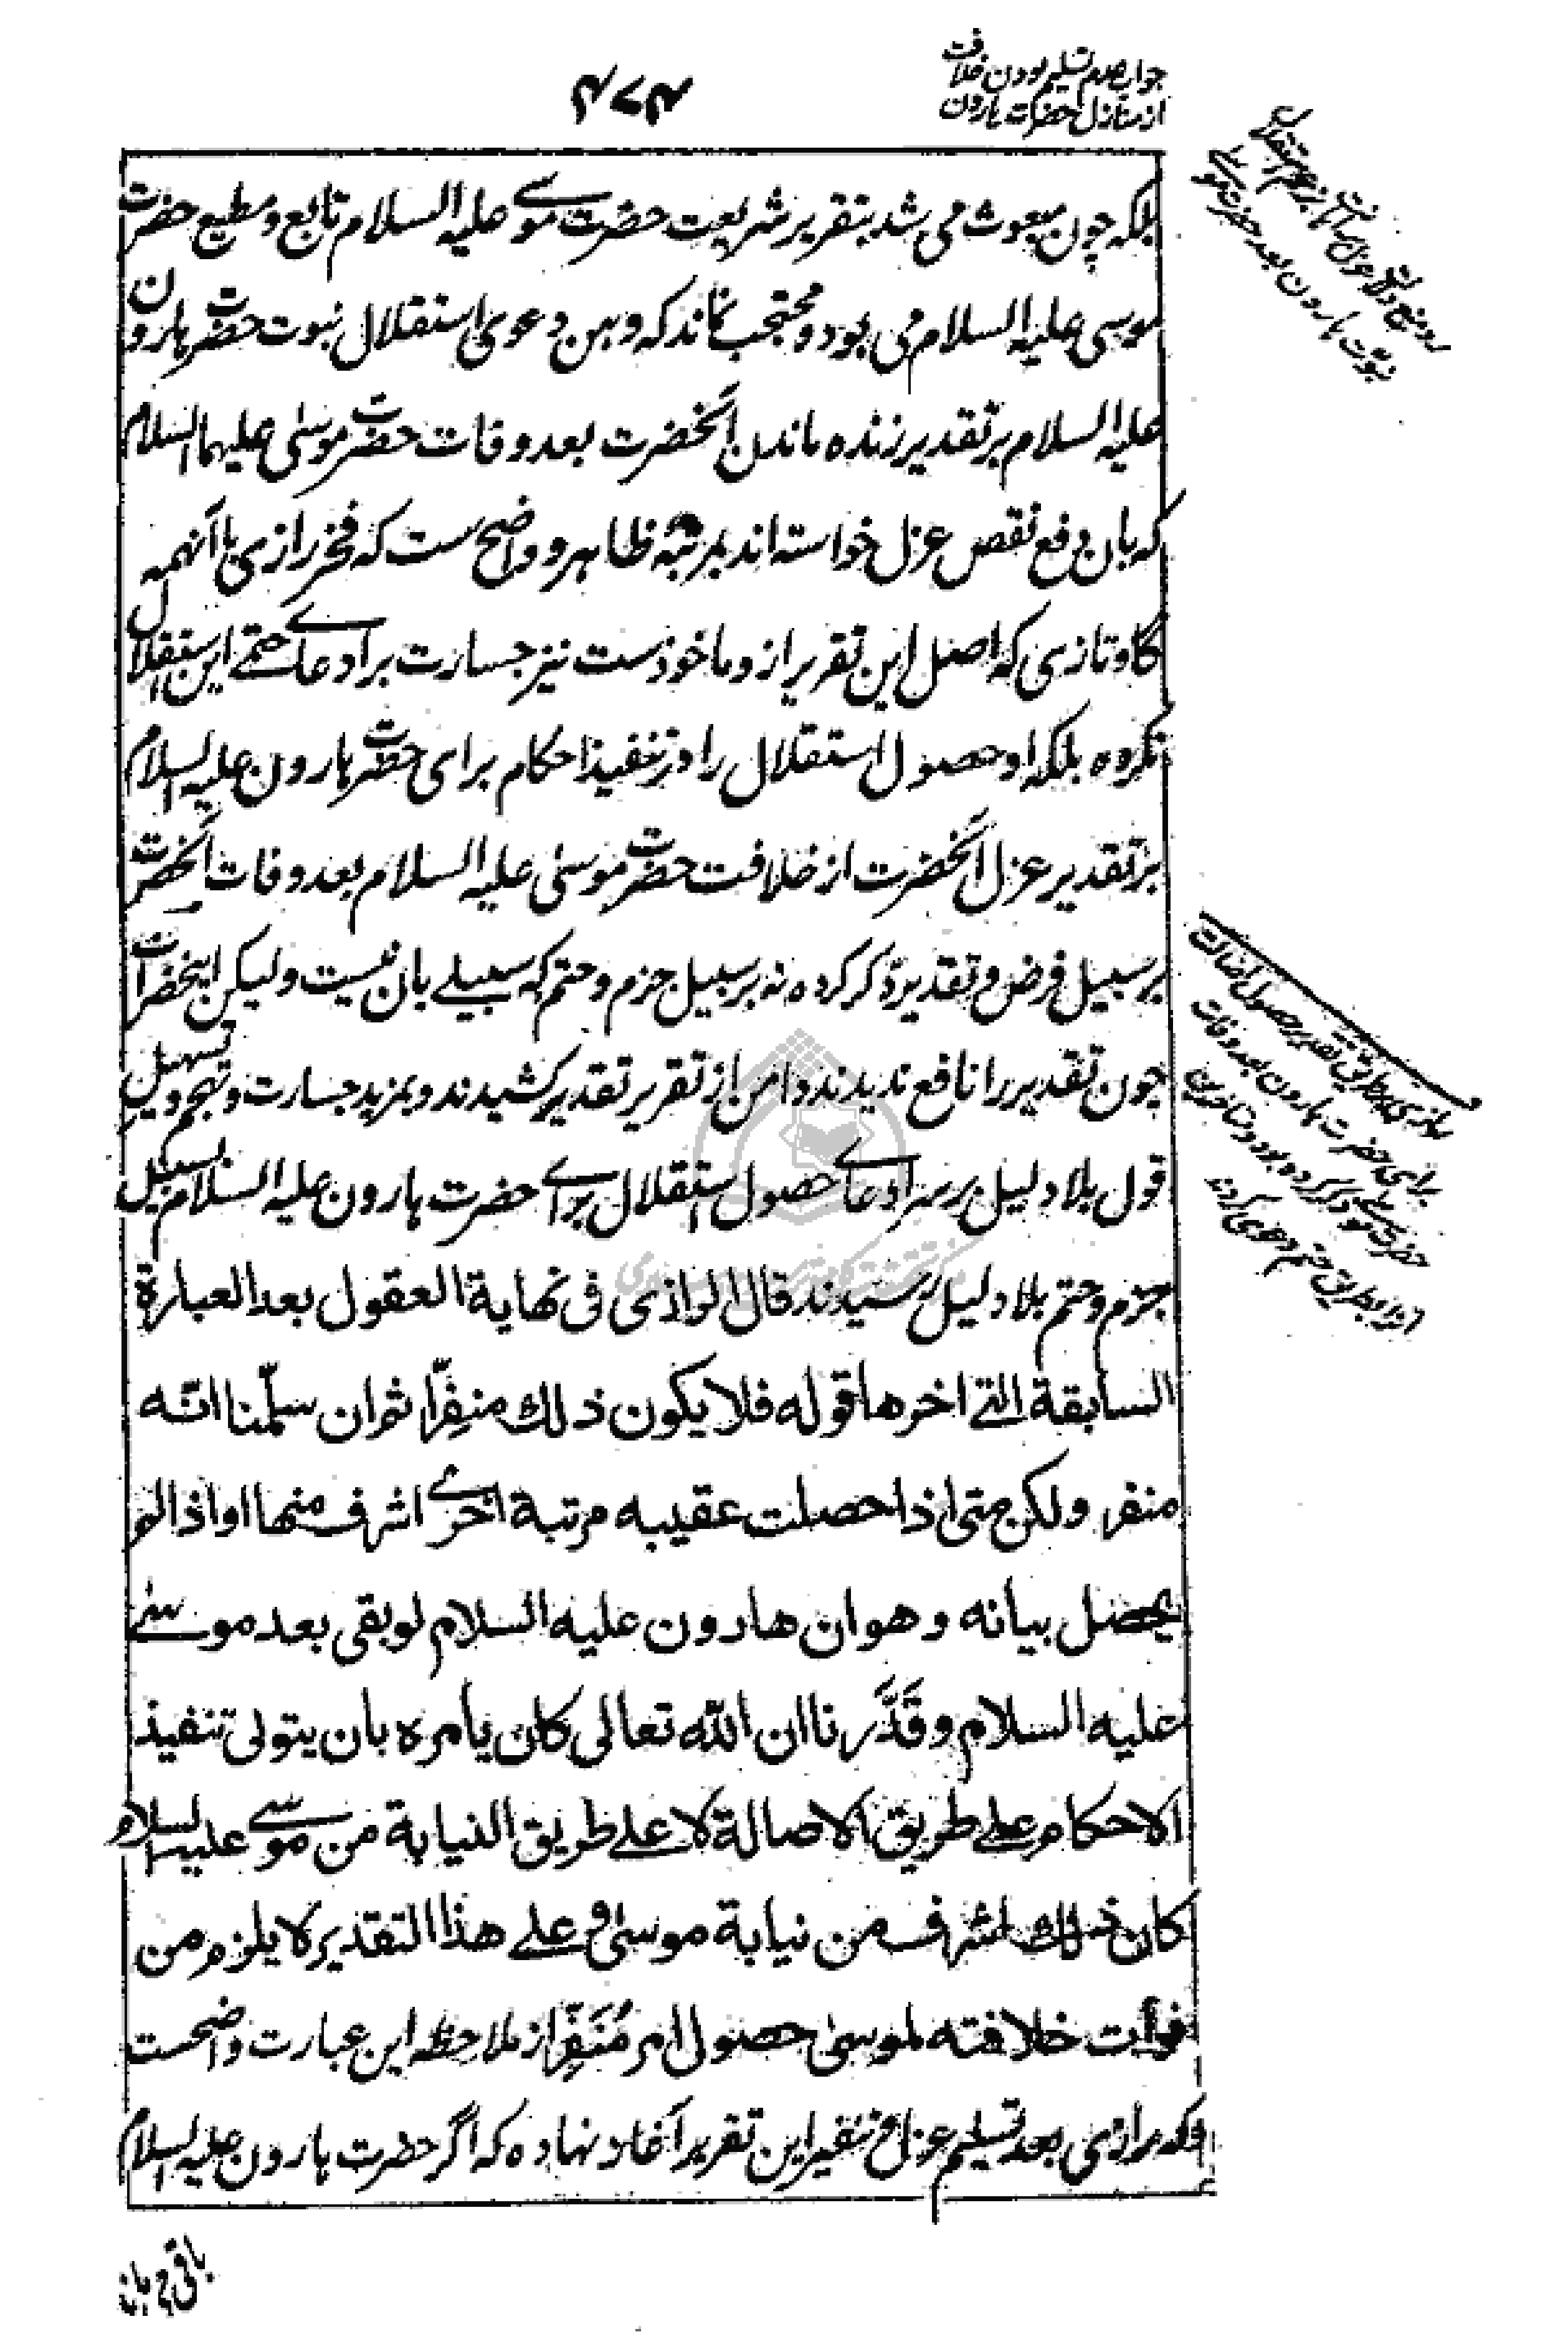 جواب عدم تسلیم بودن خلافت
از منازل حضرت هارون
۴۷۴
بلکه چون مبعوث می شد بتقریر شریعت حضرت موسی علیه السلام تابع و مطیع حضرت
موسی علیه السلام می بود و محتجب نماند که وهن دعوی استقلال نبوت حضرت هارون
علیه السلام بر تقدیر زنده ماندن آنحضرت بعد وفات حضرت موسی علیهما السلام
که بان دفع نقص عزل خواسته اند بمرتبه ظاهر و واضح ست که فخر رازی با آنهمه
گاو تازی که اصل این تقریر ازو ماخوذست نیز جسارت بر ادعای حتمی این استقلال
نکرده بلکه او حصول استقلال را در تنفیذ احکام برای حضرت هارون علیه السلام
بر تقدیر عزل آنحضرت از خلافت حضرت موسی علیه السلام بعد وفات آنحضرت
بر سبیل فرض و تقدیر ذکر کرده نه بر سبیل جزم و حتم که سبیلے بان نیست و لیکن اینحضرات
چون تقدیر را نافع ندیدند دامن از تقریر تقدیر کشیدند و بمزید جسارت و تهجم و تسهیل
قول بلا دلیل بر سر ادعای حصول استقلال برای حضرت هارون علیه السلام بسبیل
جزم و حتم بلا دلیل رسیدند قال الرازی فی نهایة العقول بعد العبارة
السابقة التی اخرها قوله فلا یکون ذلك منفِّرا ثم ان سلّمنا انّه
منفر ولکن متی اذا حصلت عقیبه مرتبة اخری اشرف منها او اذا لم
یحصل بیانه وهو ان هارون علیه السلام لو بقی بعد موسی
علیه السلام وقَدَّرنا ان اللّه تعالی کان یأمره بان یتولی تنفیذ
الاحکام علی طریق الاصالة لا علی طریق النیابة من موسی علیه السلام
کان ذلك اشرف من نیابة موسی و علی هذا التقدیر لا یلزم من
فوات خلافته لموسی حصول امر مُنَفِّر از ملاحظه این عبارت واضحست
که رازی بعد تسلیم عزل مع تنفیر این تقریر آغاز نهاده که اگر حضرت هارون علیه السلام
نبوّت هارون بعد حضرت موسی
رازی بطریق تقدیر حصول اصالت
برای حضرت هارون بعد وفات
آنرا بطریق حتم دعوی کردند
باقی